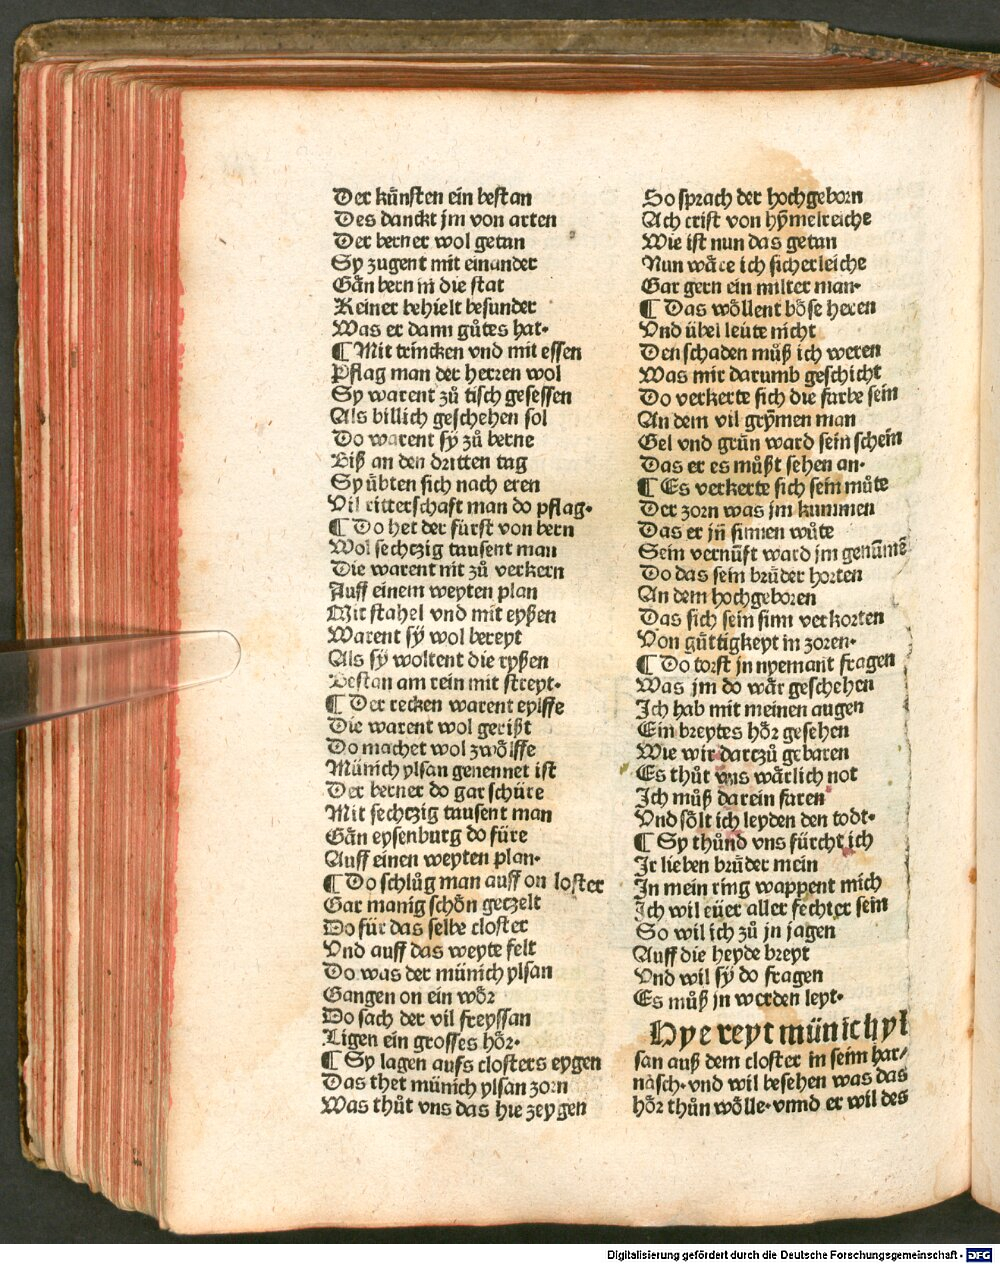 Der künsten ein bestan
Des danckt jm von arten
Der berner wol getan
Sy zugent mit einander
Gän bern in die stat
Keiner behielt besunder
Was er dann gůtes hat·
¶ Mit trincken vnd mit essen
Pflag man der herren wol
Sy warent zů tisch gesessen
Als billich geschehen sol
Do warent sÿ zů berne
Biß an den dritten tag
Sy übten sich nach eren
Vil ritterschaft man do pflag·
¶ Do het der fürst von bern
Wol sechczig tausent man
Die warent nit zů verkern
Auff einem weyten plan
Mit stahel vnd mit eyßen
Warent sÿ wol bereyt
Als sÿ woltent die ryßen
Bestan am rein mit streyt·
¶ Der recken warent eylffe
Die warent wol gerißt
Do machet wol zwölffe
Münich ylsan genennet ist
Der berner do gar schüre
Mit sechczig tausent man
Gän eysenburg do füre
Auff einen weyten plan·
¶ Do schlůg man auff on loster
Gar manig schön geczelt
Do für das selbe closter
Vnd auff das weyte felt
Do was der münich ylsan
Gangen on ein wör
Do sach der vil freyssan
Ligen ein grosses hör·
¶ Sy lagen aufs closters eygen
Das thet münich ylsan zorn
Was thůt vns das hie zeygen
So sprach der hochgeborn
Ach crist von hÿmelreiche
Wie ist nun das getan
Nun wäre ich sicherleiche
Gar gern ein milter man·
¶ Das wöllent böse heren
Vnd übel leüte nicht
Den schaden můß ich weren
Was mir darumb geschicht
Do verkerte sich die farbe sein
An dem vil grÿmen man
Gel vnd grün ward sein schein
Das er es můßt sehen an·
¶ Es verkerte sich sein můte
Der zorn was jm kummen
Das er jn̄ sinnen wůte
Sein vernūft ward jm genūmē
Do das sein brůder horten
An dem hochgeboren
Das sich sein sinn verkorten
Von güttigkeyt in zoren·
¶ Do torst jn nyemant fragen
Was jm do wär geschehen
Ich hab mit meinen augen
Ein breytes hör gesehen
Wie wir darczů gebaren
Es thůt vns wärlich not
Ich můß darein faren
Vnd sölt ich leyden den todt·
¶ Sy thůnd vns fürcht ich
Ir lieben brůder mein
In mein ring wappent mich
Ich wil eüer aller fechter sein
So wil ich zů jn jagen
Auff die heyde breyt
Vnd wil sÿ do fragen
Es můß jn werden leyt·
Hye reyt münich yl
san auß dem closter in seim har/
näsch·vnd wil besehen was das
hör thůn wölle·vnnd er wil des
Digitalisierung gefördert durch die Deutsche Forschungsgemeinschaft - DFG